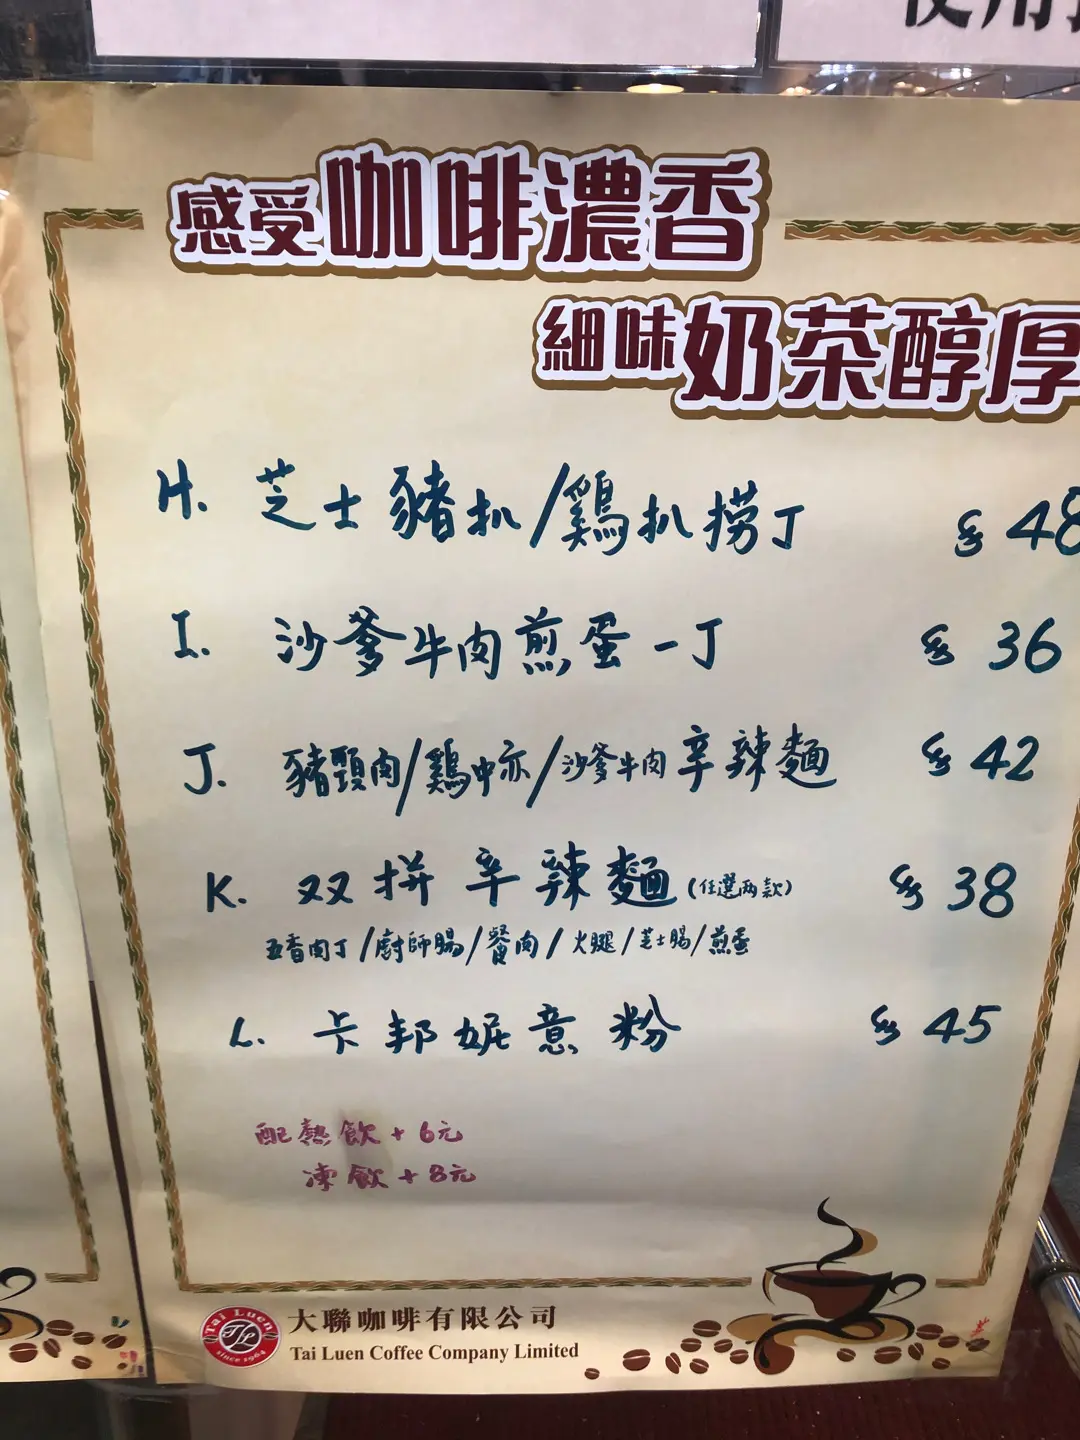 使用
感受咖啡濃香
細味奶茶醇厚
H. 芝士豬扒/鷄扒撈丁 $ 48
I. 沙爹牛肉煎蛋一丁 $ 36
J. 豬頸肉/鷄中亦/沙爹牛肉辛辣麵 $ 42
K. 双拼辛辣麵(任選两款) $ 38
五香肉丁/廚師腸/餐肉/火腿/芝士腸/煎蛋
L. 卡邦妮意粉 $ 45
配熱飲+6元
凍飲+8元
Tai Luen
TL
since 1964
大聯咖啡有限公司
Tai Luen Coffee Company Limited